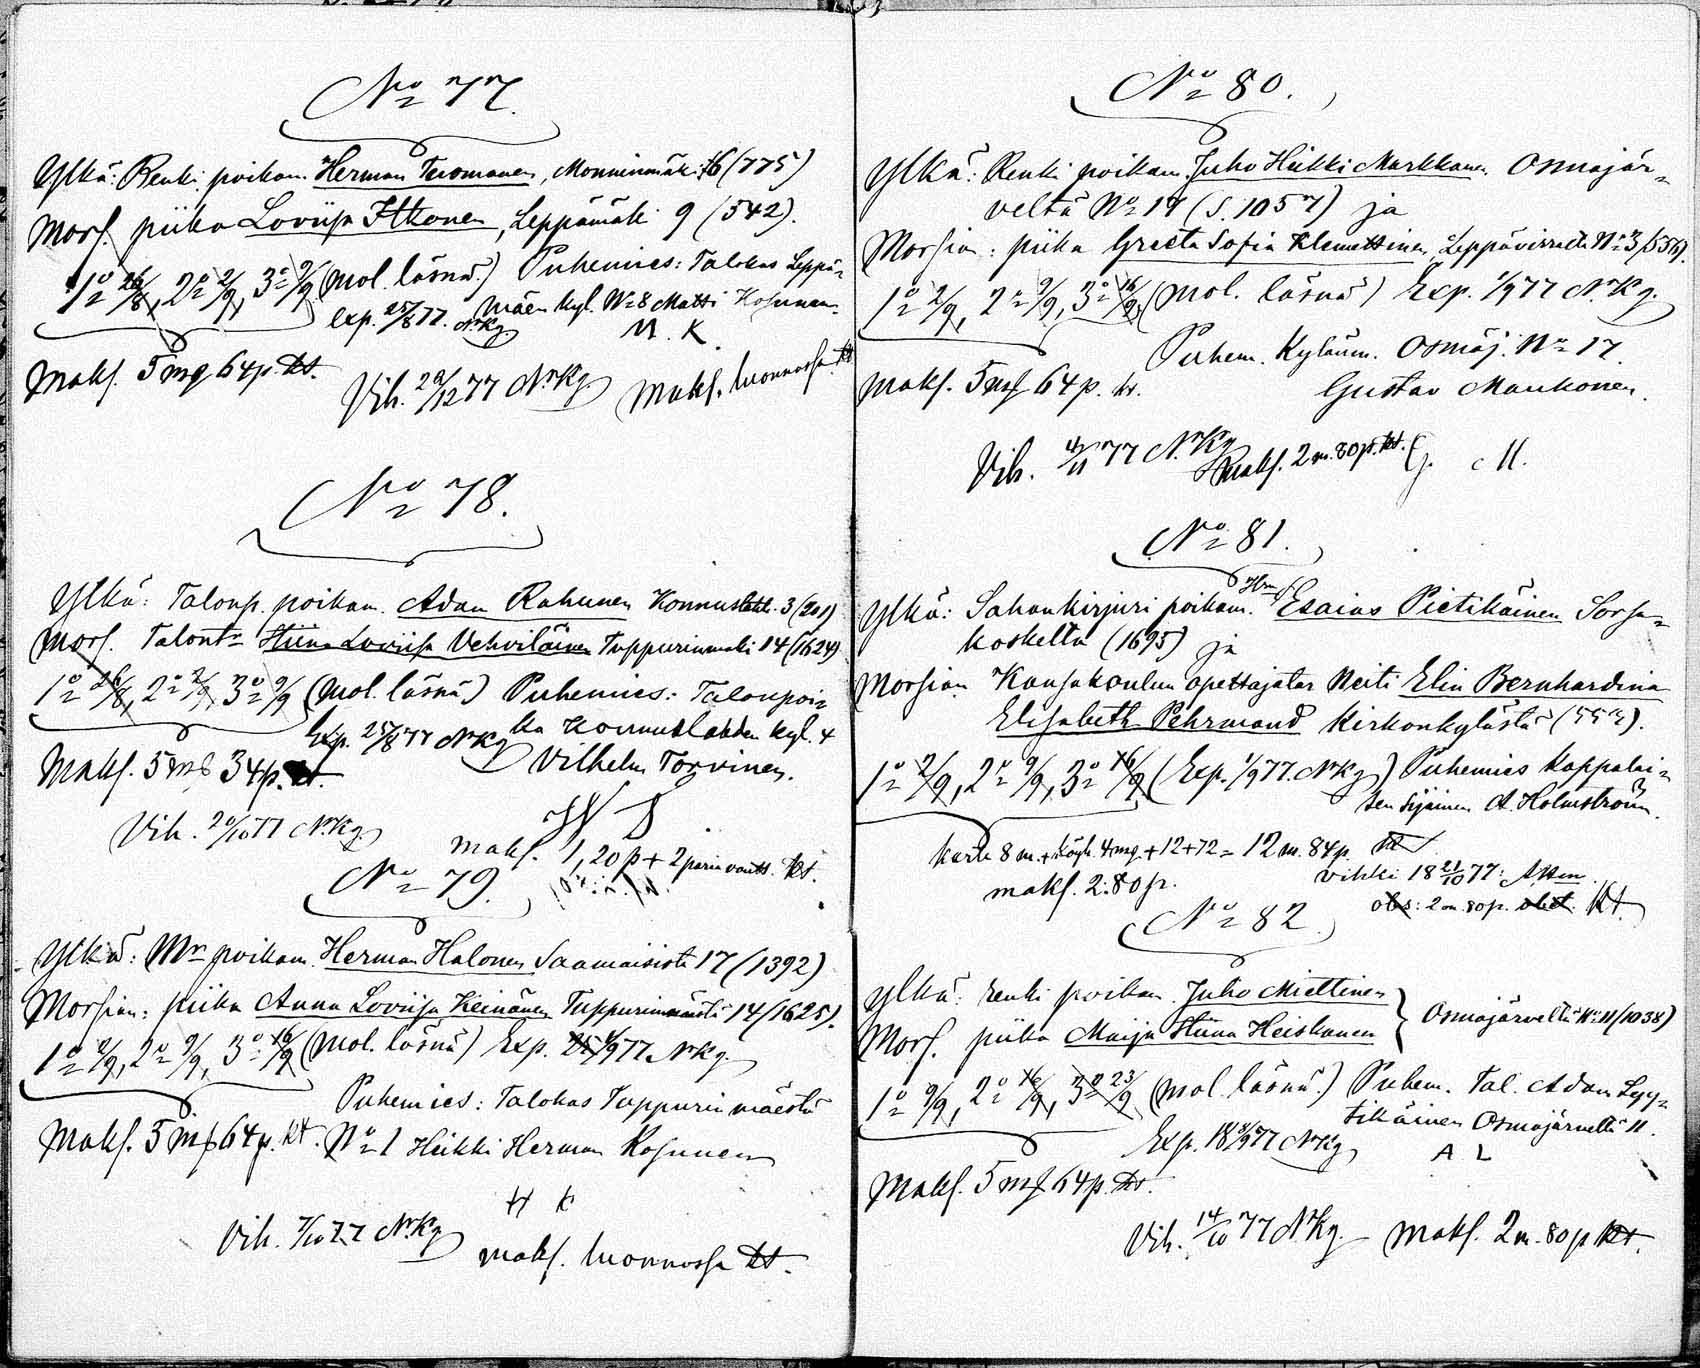 No 77.
Ylkä: Renki poikam. Herman Tuomanen, Monninmäki 16 (775)
Mors. piika Loviisa Itkonen, Leppämäki 9 (542).
1o 26/8, 2o 2/9, 3o 9/9 (mol. läsnä.) Puhemies: Talokas Leppä-
exp. 25/8 77. NrKg. mäen kyl. No 8 Matti Kosunen.
M. K.
Maks. 5 mg 64 p. kt.
Vih. 77 NrKg. maks. luonnossa kt
No 78.
Ylkä: Taloup. poikam. Adam Rahunen Konnuslaht. 3 (201)
Mors. Talontr Stiina Loviisa Vehviläinen Tuppurinmäki 14 (1624)
1o 26/8, 2o 2/9 3o 9/9 (mol. läsnä) Puhemies: Talonpoi-
Exp. 25/8 77 NrKg ka Konnuslahden kyl. 4
Maks. 5 m 34 p. kt. Vilhelm Torvinen.
Vih. 20/10 77 NrKg.
maks. 1,20 p + 2 paria vantt. kt.
No 79.
Ylkä: Mr poikam. Herman Halonen Saamaisista 17 (1392)
Morsian: piika Anna Loviisa Keinänen Tuppurinmäestä 14 (1625).
1o 2/9, 2o 9/9, 3o 16/9 (mol. läsnä) Exp. 1/9 77 NrKg.
Puhemies: Talokas Tuppurinmäestä
Maks. 5 mf 64 p. kt. No 1 Heikki Herman Kosunen
H K
Vih. 7/10 77 NrKg
maks. luonnossa kt.
No 80.
Ylkä: Renki poikam. Juho Heikki Markkanen Osmajär-
veltä No 17 (S. 1057) ja
Morsian: piika Greeta Sofia Klemettinen, Leppävirralta No 3 (536).
1o 2/9, 2o 9/9, 3o 16/9, (mol. läsnä) Exp. 1/9 77 NrKg.
Puhem. Kyläum. Osmaj. No 17.
Maks. 5 mf 64 p. kt. Gustav Maukonen.
Vih. 4/11 77 NrKg maks. 2 m. 80 p. kt. G. M.
No 81.
Ylkä: Sahankirjuri poikam. Hra Esaias Pietikäinen Sorsa-
koskelta (1695) ja
Morsian Kansakoulun opettajatar Neiti Elin Bernhardina
Elisabeth Pehrmand Kirkonkylästä (557).
1o 2/9, 2o 9/9, 3o 16/9 (Exp. 1/9 77. NrKg) Puhemies Kappalai-
sen sijainen A. Holmström.
karta 8 m. + Köyh. 4 mg. + 12 + 72 = 12 m. 84 p. kt
maks. 2: 80 p. vihki 18 21/10 77:
2 m. 80 p. kt.
No 82.
Ylkä: renki poikam. Juho Miettinen
Osmajärveltä No 11 (1038)
Mors. piika Maija Stiina Heiskanen
1o 9/9, 2o 16/9, 3o 23/9 (mol. läsnä.) Puhem. Tal. Adam Lyy-
tikäinen Osmajärveltä 11.
Exp. 8/9 77 NrKg A L
Maks. 5 mf 64 p. kt.
Vih. 14/10 77 NrKg. maks. 2 m. 80 p kt.